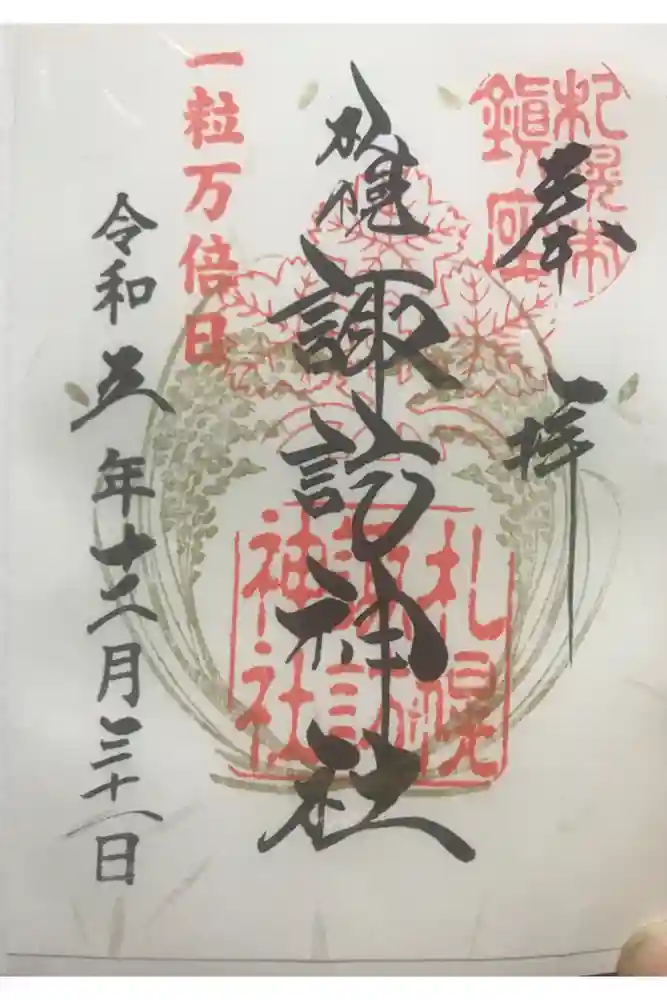 奉拝
札幌市
鎭座
札幌
諏訪神社
札幌
諏訪
神社
一粒万倍日
令和五年十二月三十一日